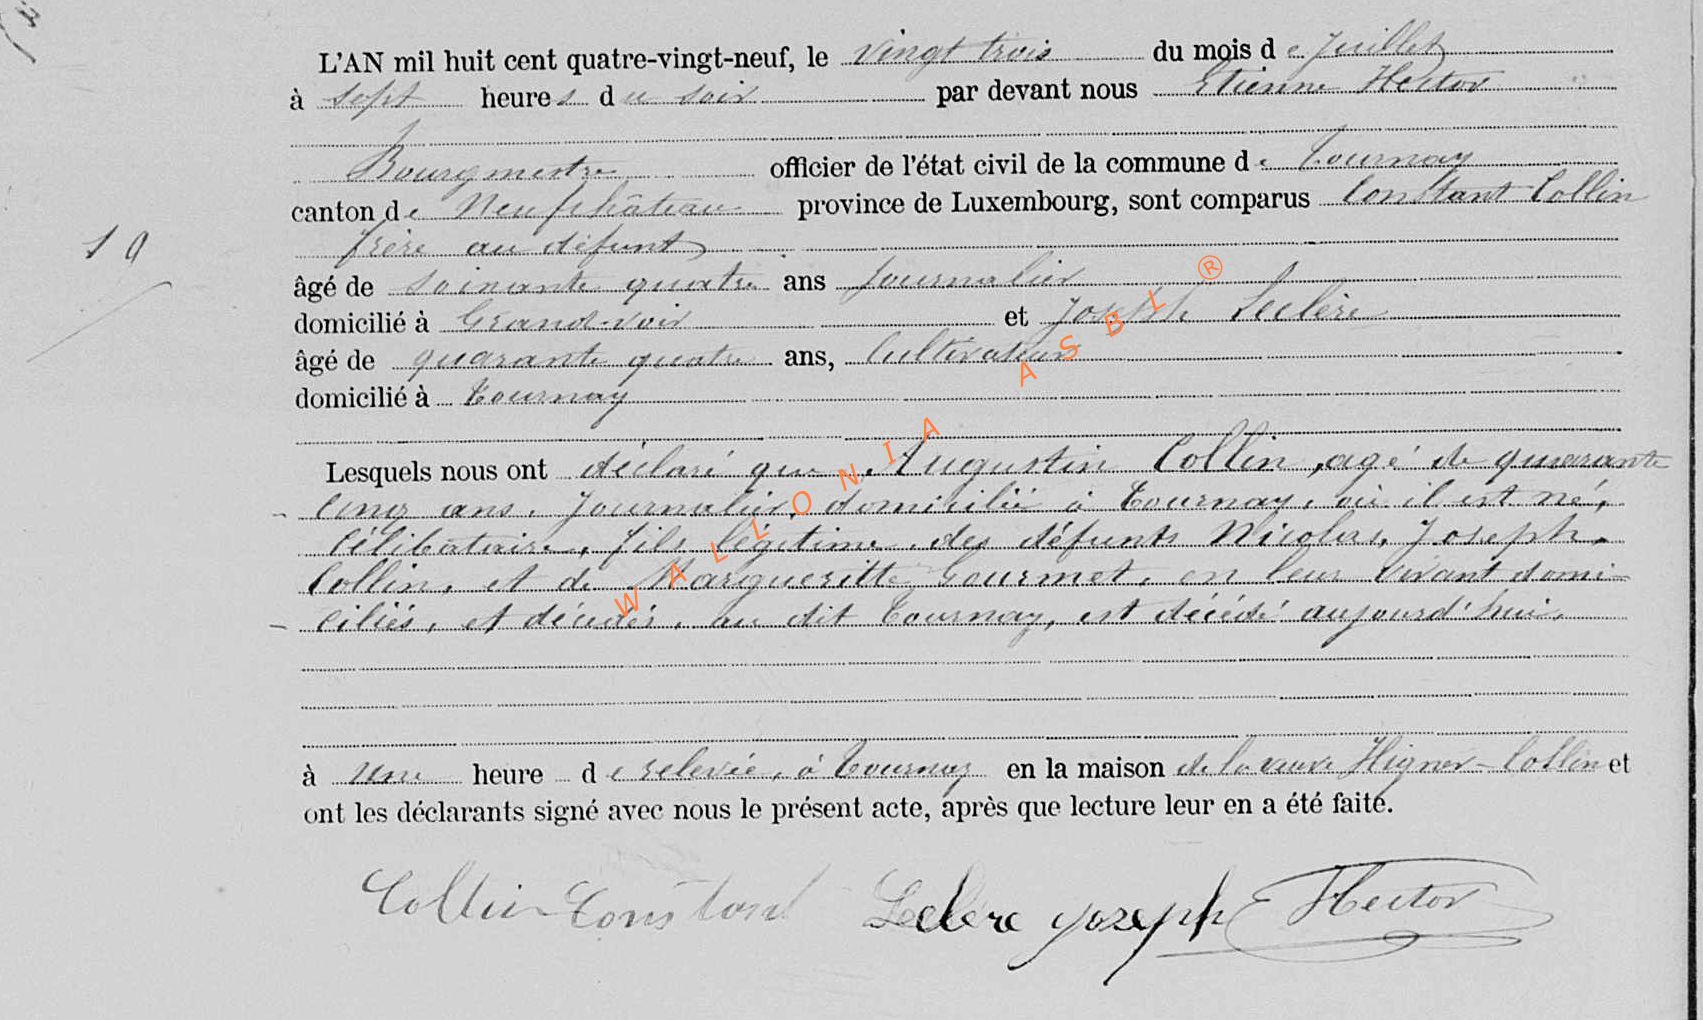 L'AN mil huit cent quatre-vingt-neuf, le vingt trois du mois de Juillet
à sept heures du soir par devant nous Etienne Hector
Bourgmestre officier de l'état civil de la commune de Tournay
canton de Neufchâteau province de Luxembourg, sont comparus Constant Collin
frère au défunt
19
âgé de soixante quatre ans Journalier
domicilié à Grand-voir et Joseph Leclère
âgé de quarante quatre ans, Cultivateur
domicilié à Tournay
Lesquels nous ont déclaré que Augustin Collin, agé de quarante
cinq ans, Journalier, domicilié à Tournay, où il est né,
Célibataire, fils légitime des défunts Nicolas, Joseph,
Collin, et de Margueritte Gourmet, en leur vivant domi-
ciliés, et décédés, au dit Tournay, est décédé aujourd'hui,
à une heure de relevée, à Tournay en la maison de la veuve Higner-Collin et
ont les déclarants signé avec nous le présent acte, après que lecture leur en a été faite.
Collin Constant Leclère Joseph Hector
WALLONIA ASBL ®